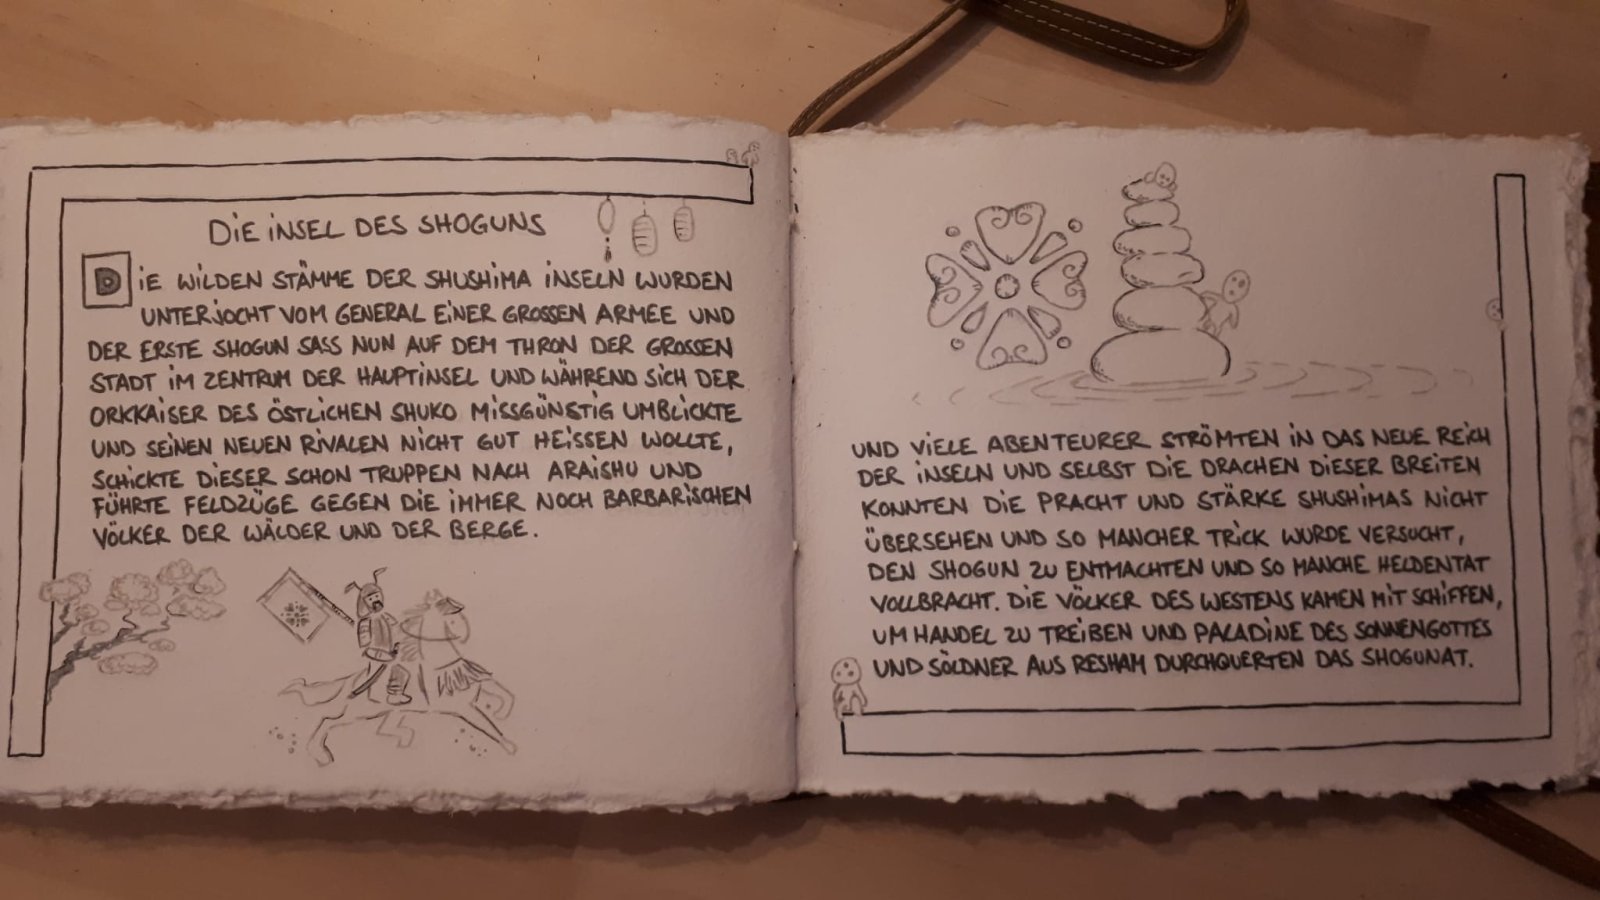 DIE INSEL DES SHOGUNS
DIE WILDEN STÄMME DER SHUSHIMA INSELN WURDEN
UNTERJOCHT VOM GENERAL EINER GROSSEN ARMEE UND
DER ERSTE SHOGUN SASS NUN AUF DEM THRON DER GROSSEN
STADT IM ZENTRUM DER HAUPTINSEL UND WÄHREND SICH DER
ORKKAISER DES ÖSTLICHEN SHUKO MISSGÜNSTIG UMBLICKTE
UND SEINEN NEUEN RIVALEN NICHT GUT HEISSEN WOLLTE,
SCHICKTE DIESER SCHON TRUPPEN NACH ARAISHU UND
FÜHRTE FELDZÜGE GEGEN DIE IMMER NOCH BARBARISCHEN
VÖLKER DER WÄLDER UND DER BERGE.
UND VIELE ABENTEURER STRÖMTEN IN DAS NEUE REICH
DER INSELN UND SELBST DIE DRACHEN DIESER BREITEN
KONNTEN DIE PRACHT UND STÄRKE SHUSHIMAS NICHT
ÜBERSEHEN UND SO MANCHER TRICK WURDE VERSUCHT,
DEN SHOGUN ZU ENTMACHTEN UND SO MANCHE HELDENTAT
VOLLBRACHT. DIE VÖLKER DES WESTENS KAMEN MIT SCHIFFEN,
UM HANDEL ZU TREIBEN UND PALADINE DES SONNENGOTTES
UND SÖLDNER AUS RESHAM DURCHQUERTEN DAS SHOGUNAT.